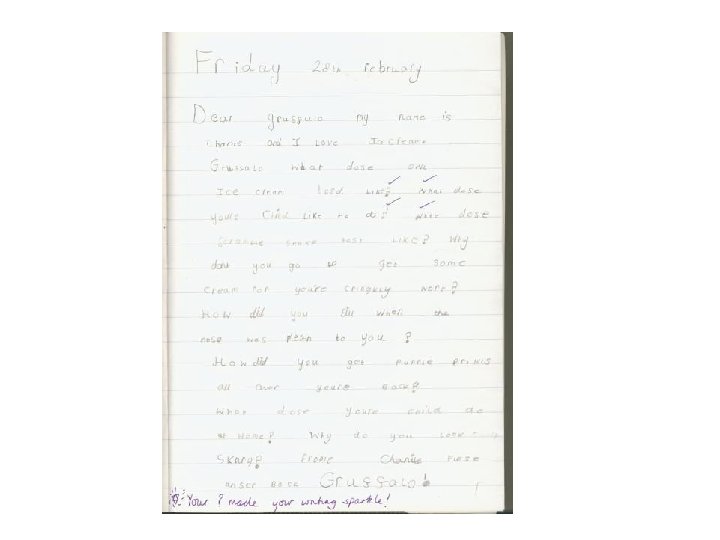 Friday 28th February
Dear grussulo my name is
Charlie and I Love Icecream
Grussalo what dose
Ice cream lord Like? What dose
youre Child Like to do? what dose
taste Like? Why
dont you go get some
cream for youre crinquly wort?
How did you when the
nose was to you ?
How did you get purple prikls
all over youre back?
What dose youre child do
at Home? Why do you Look
Skary? Frome Charlie Plese
anser Back Grussalo!
Your ? made your writing sparkle!